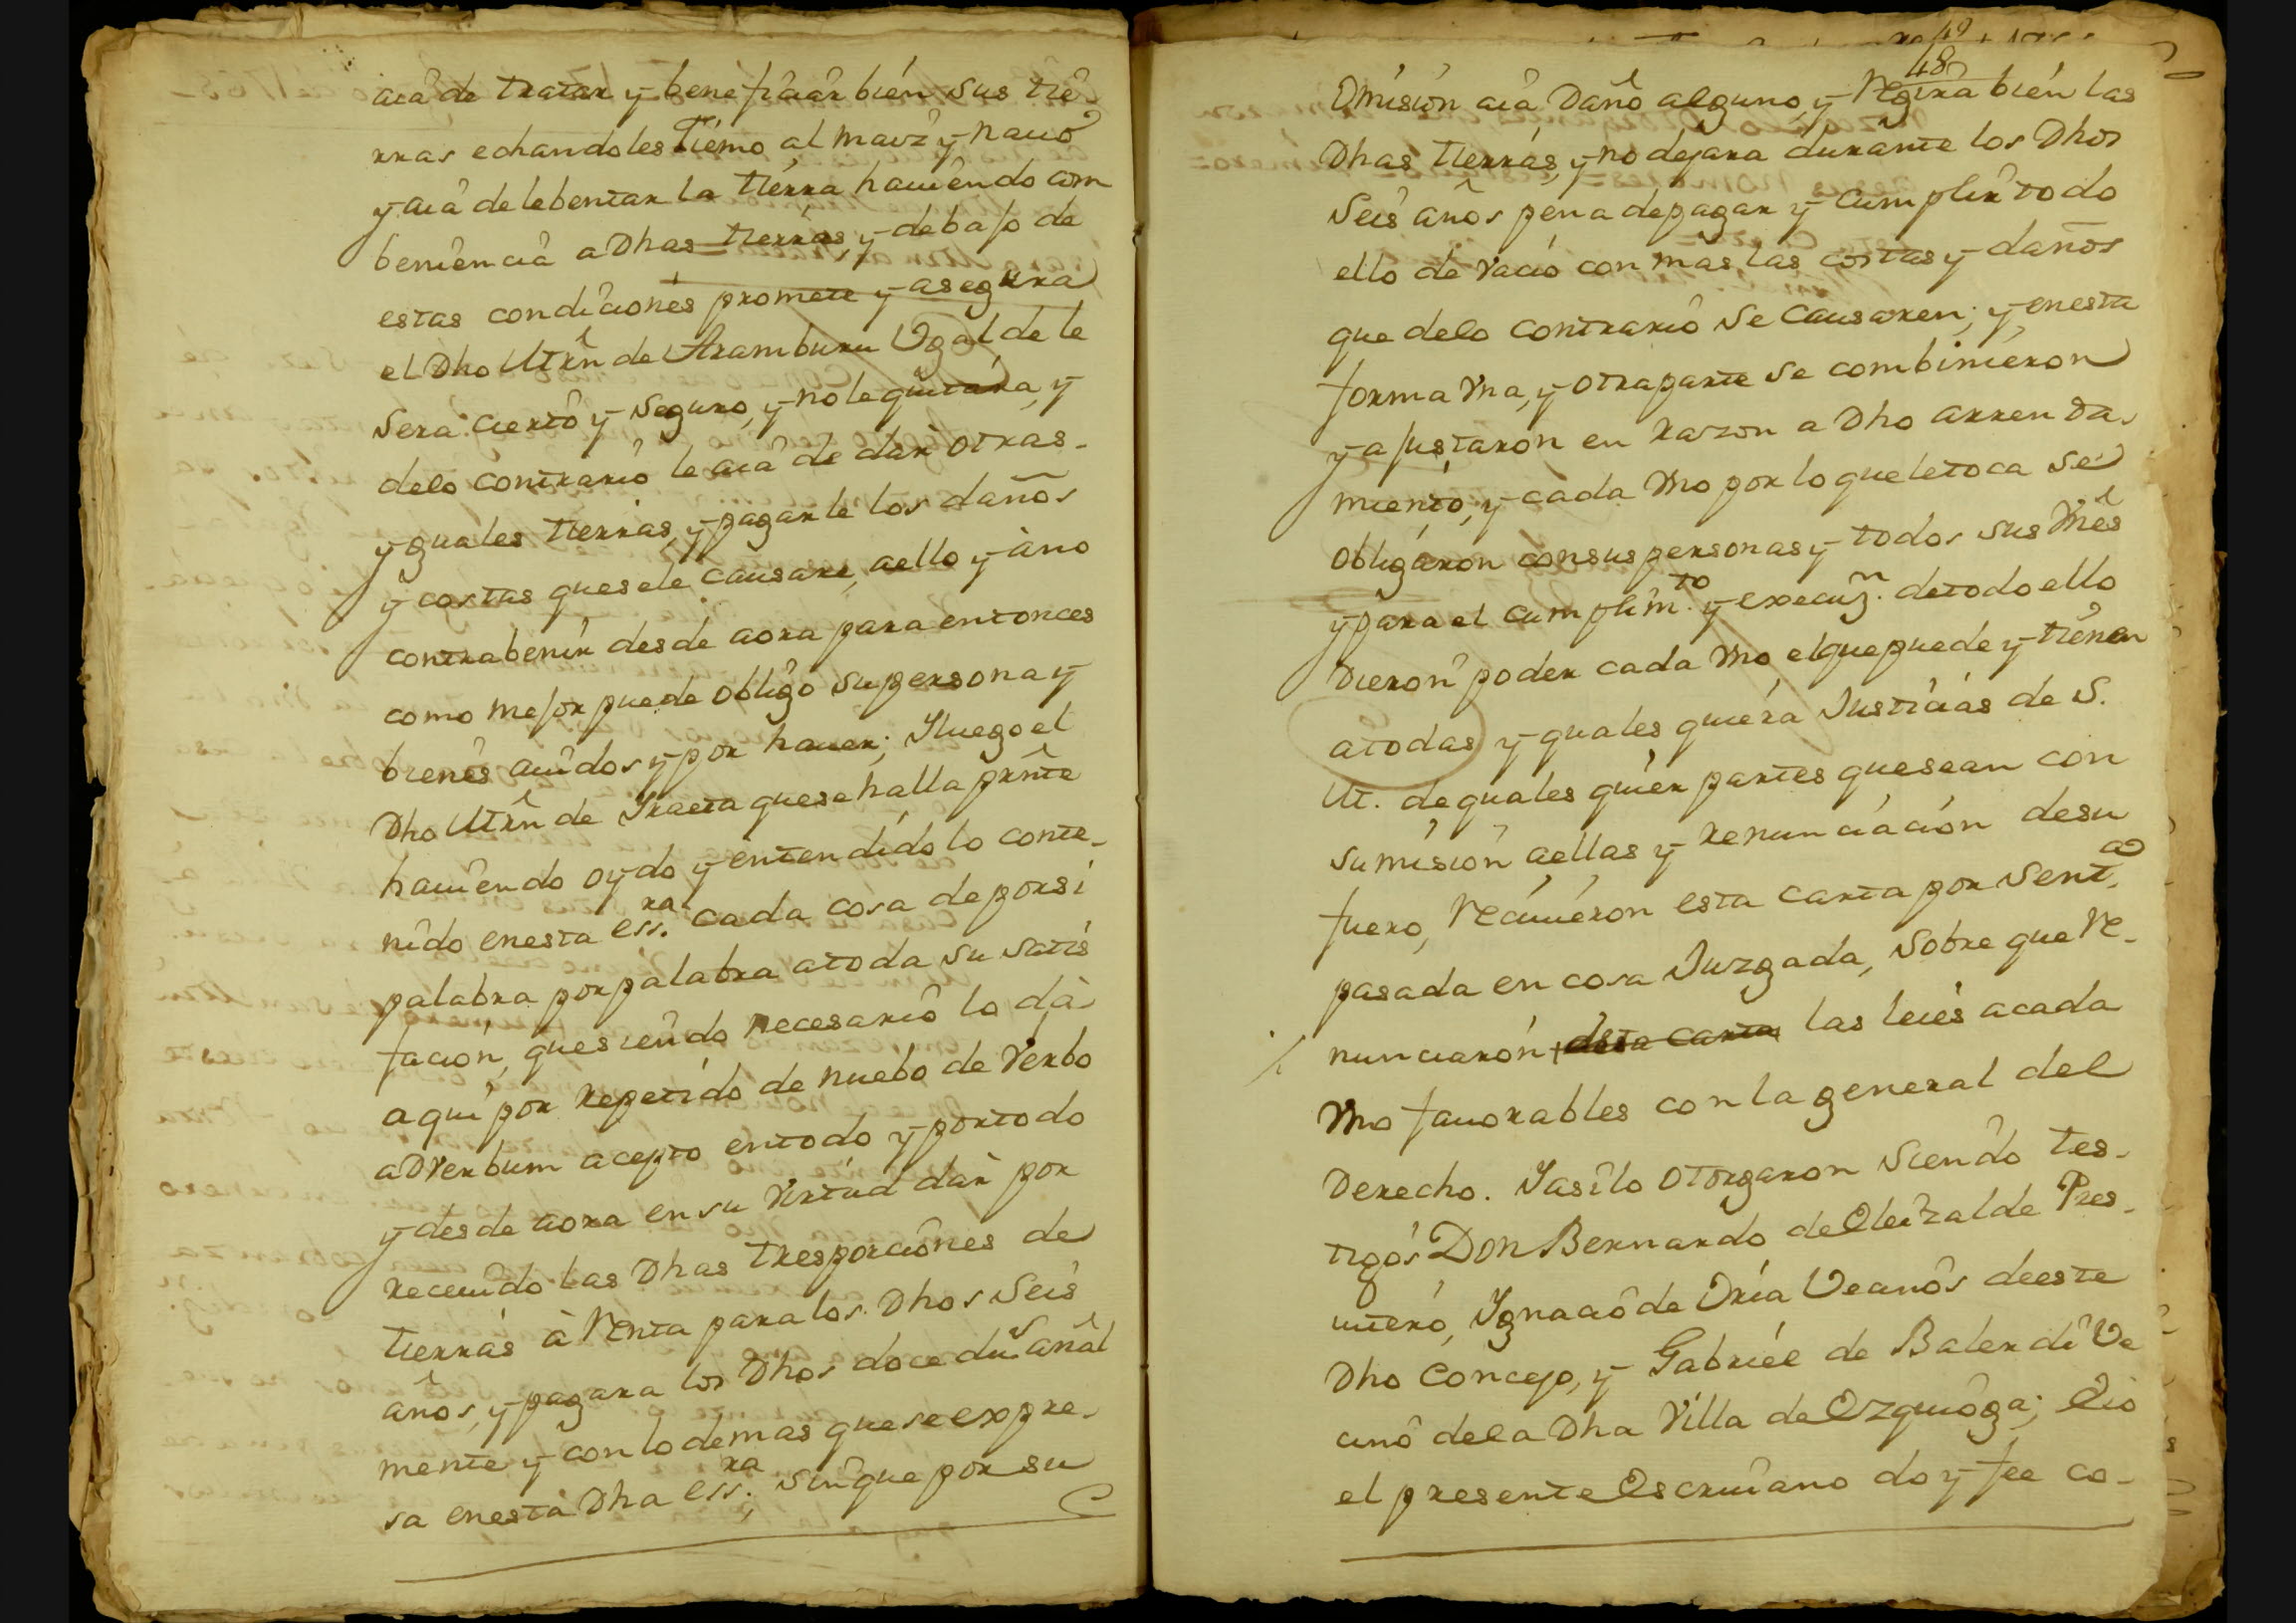 aia de tratar y beneficiar bien sus tie
rras echandoles tiemo al maiz y nauo
y aia de lebentar la tierra hauiendo com
beniencia a Dhas tierras, y debajo de
estas condiciones promete y asegura
el Dho Mrn de Aramburu Vgalde le
sera cierto y seguro, y no le quitara, y
delo contrario le aia de dar otras
yguales tierras, y pagarle los daños
y costas quesele causare, aello y àno
contrabenir desde aora para entonces
como mejor puede obligo su persona y
bienes auidos y por hauer; Yluego el
Dho Mrn de Yraeta quese halla prnte
hauiendo oydo y entendido lo conte-
nido enesta ess.ra cada cosa de porsi
palabra por palabra atoda su satis
facion, quesiendo necesario lo dà
aqui por repetido de nuebo de Verbo
adVerbum acepto entodo y portodo
y desde aora en su Virtud dar por
receuido las Dhas tresporciones de
tierras à Renta para los Dhos Seis
años, y pagara los Dhos doce dus añal
mente y con lo demas que se expre-
sa enesta Dha ess.ra, sin que por su
49
48
Omision aia Daño alguno, y Regira bien las
Dhas tierras, y no dejara durante los Dhos
Seis años pena depagar y Cumplir todo
ello de vacio con mas las costas y daños
que delo contrario se Causaren; y enesta
forma Vna, y otraparte se combinieron
y ajustaron en razon a Dho arrenda-
miento, y cada Vno por lo queletoca se
obligaron consus personas y todos sus Vnês
y para el cumplim.to y execuz.n detodo ello
Dieron poder cada Vno, elquepuede y tienen
atodas y quales quiera Justicias de S.
M. de quales quier partes quesean con
sumision aellas y renunciacion desu
fuero, Reciuieron esta carta por Sent.a
pasada en cosa Juzgada, Sobre que Re-
nunciaron, desta carta las leies acada
Vno fauorables con la general del
Derecho. Yasilo otorgaron Siendo tes-
tigos Don Bernardo de Oleizalde Pres-
uitero, Ygnacio de Vria Vecinos deeste
Dho Concejo, y Gabriel de Balerdi Ve
cino dela Dha Villa de Ezquioga; Eio
el presente Escriuano doy fee co-